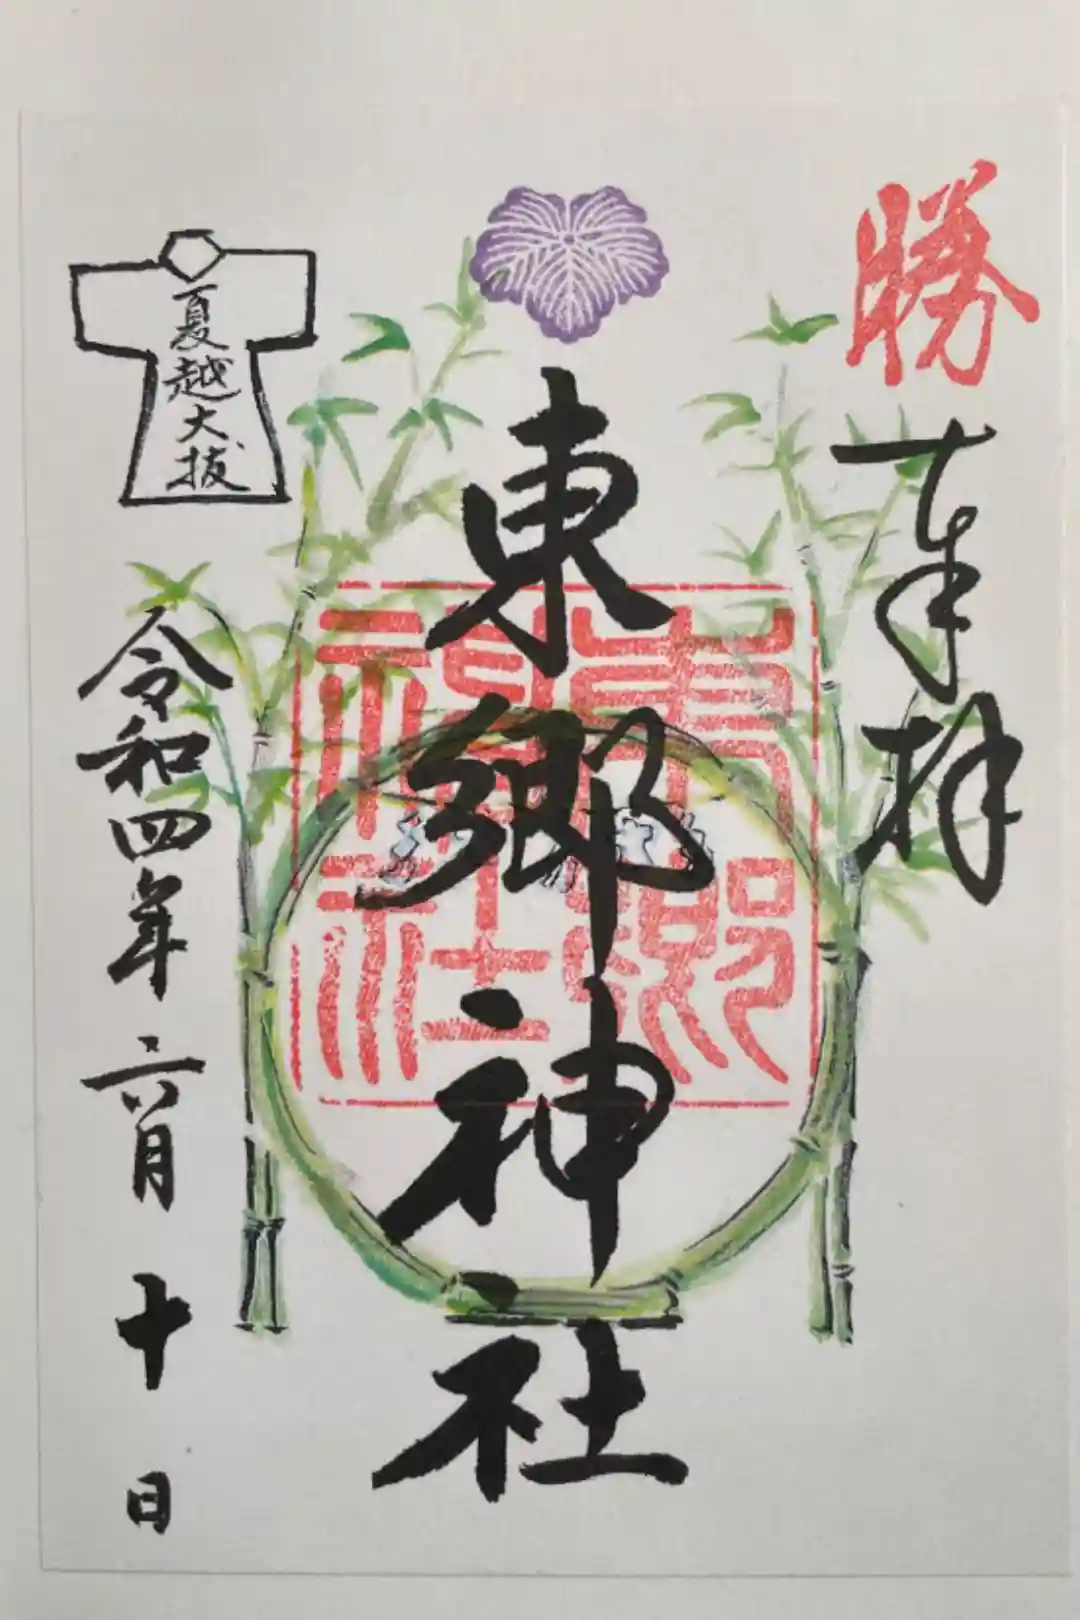 勝
奉拝
東郷神社
東郷神社
夏越大抜
令和四年六月十日